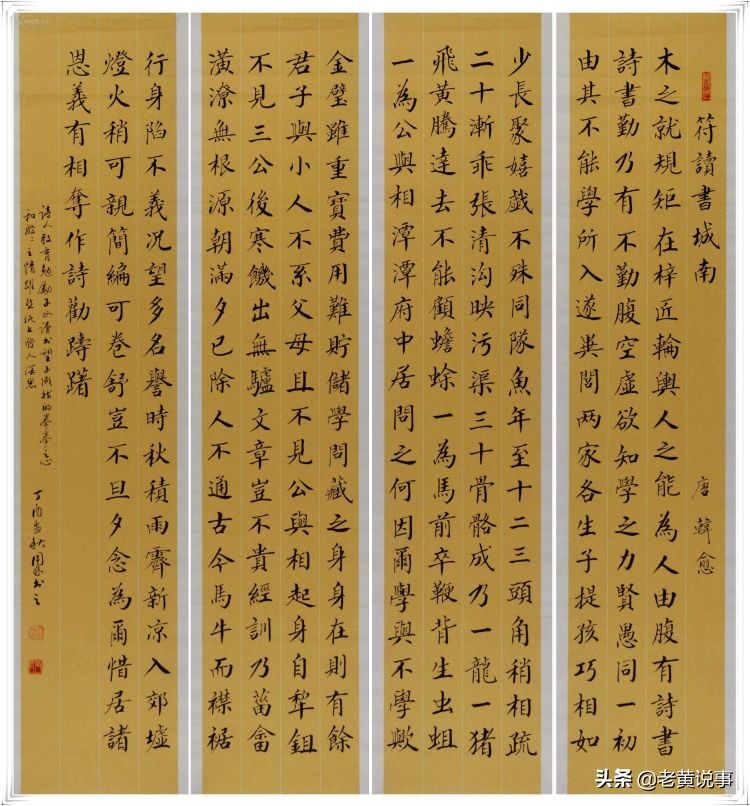 符讀書城南 唐 韓愈
木之就規矩在梓匠輪輿人之能為人由腹有詩書
詩書勤乃有不勤腹空虛欲知學之力賢愚同一初
由其不能學所入遂異閭两家各生子提孩巧相如
少長聚嬉戲不殊同隊魚年至十二三頭角稍相疏
二十漸乖張清沟映污渠三十骨骼成乃一龍一猪
飛黃騰達去不能顧蟾蜍一為馬前卒鞭背生虫蛆
一為公與相潭潭府中居問之何因爾學與不學歟
金璧雖重寶費用難貯儲學問藏之身身在則有餘
君子與小人不系父母且不見公與相起身自犁鉏
不見三公後寒饑出無驢文章豈不貴經訓乃菑畬
潢潦無根源朝滿夕已除人不通古今馬牛而襟裾
行身陷不義况望多名譽時秋積雨霽新凉入郊墟
燈火稍可親簡編可卷舒豈不旦夕念為爾惜居諸
恩義有相奪作詩勸躊躇
詩人教育勉勵子女讀书望子成龍的拳拳之心
和殷殷之情躍然紙上發人深思
丁酉孟秋书之
头条 @老黄说事